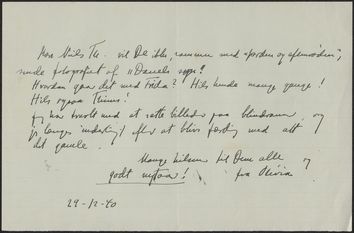 Kære Niels Th. vil De ikke, sammen med
sende fotografiet af "Daniels
Hvordan gaar det med Frida? Hils hende mange gange!
Hils ogsaa
Jeg har travlt med at rette billeder paa blindramme, og
jeg længes inderligt efter at blive færdig med alt
det gamle.
Mange hilsner til Dem alle og
godt nytaar! fra Olivia
29-12-40